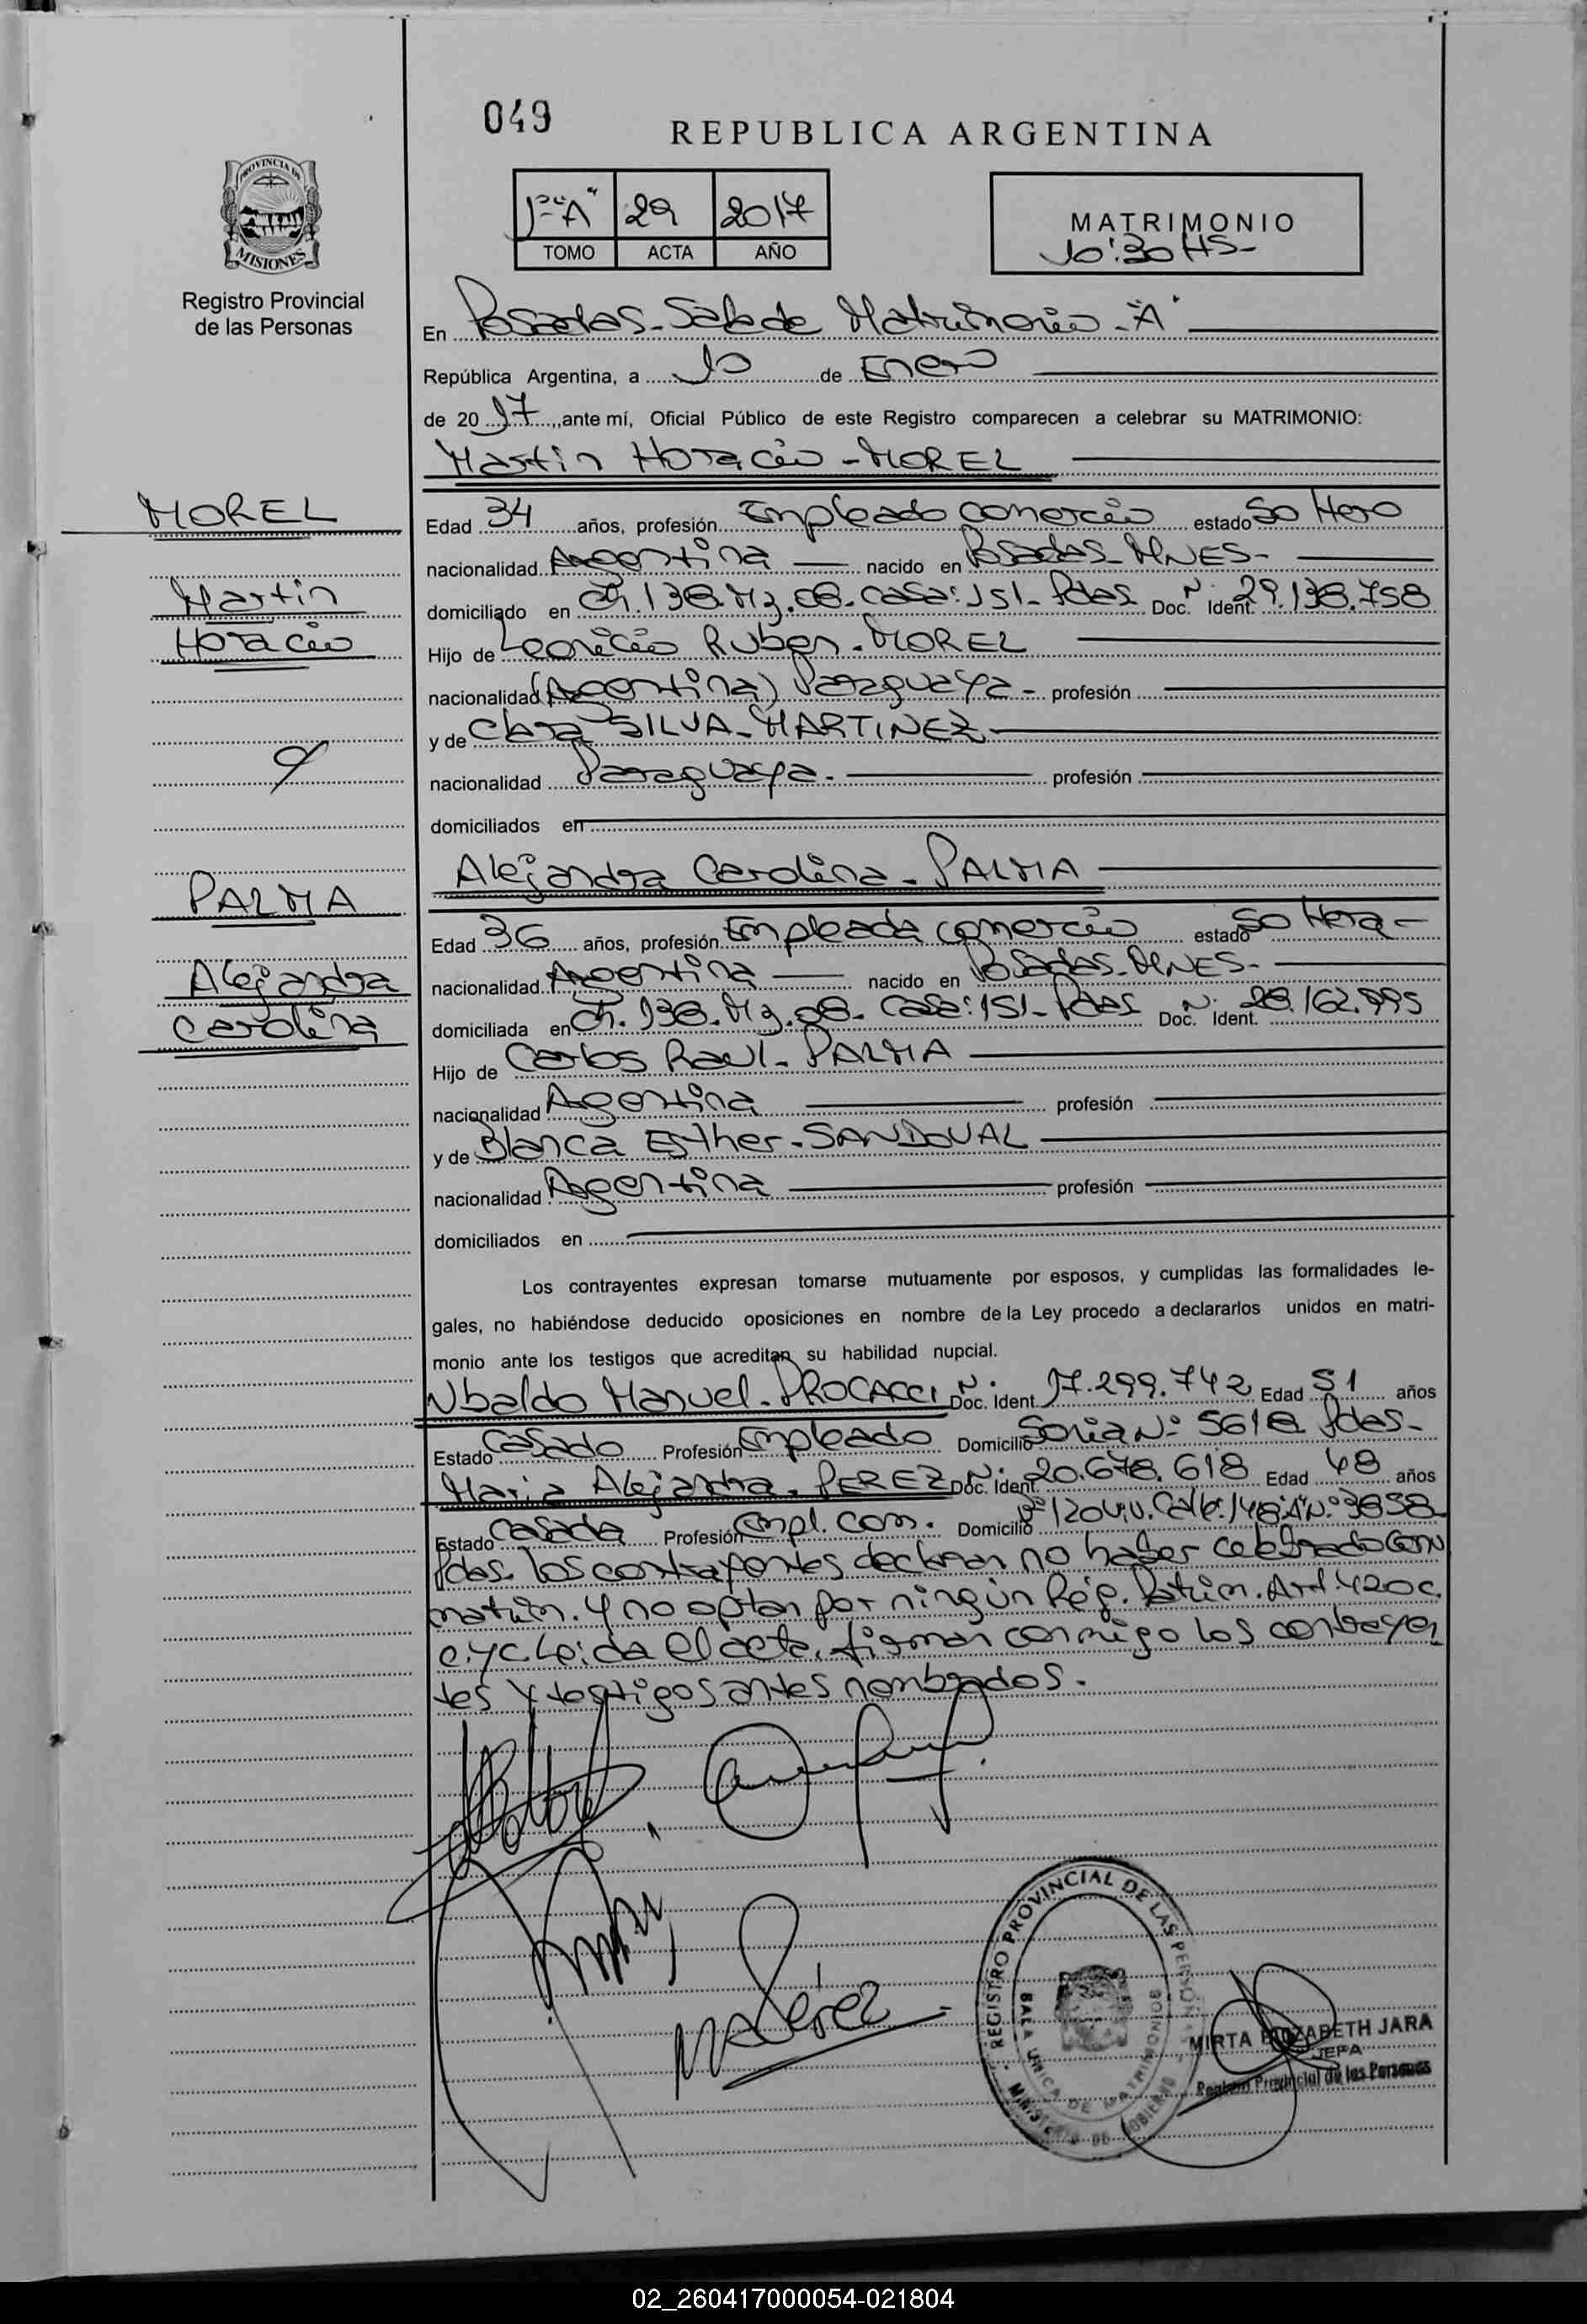 049
REPUBLICA ARGENTINA
PROVINCIA DE
MISIONES
Registro Provincial
de las Personas
1º "A" 29 2017
TOMO ACTA AÑO
MATRIMONIO
10:30 HS-
En Posadas - Sala de Matrimonio - "A"
República Argentina, a 10 de Enero
de 2017, ante mí, Oficial Público de este Registro comparecen a celebrar su MATRIMONIO:
Martin Horacio - MOREL
MOREL
Martin
Horacio
Edad 34 años, profesión Empleado Comercio estado Soltero
nacionalidad Argentina nacido en Posadas - MNES-
domiciliado en Ch. 138. Mz. 08. Casa: 151 - Pdas Doc. Ident. Nº 29.138.758
Hijo de Leonicio Ruben - MOREL
nacionalidad (Argentina) Paraguaya - profesión
y de Clara SILVA - MARTINEZ
nacionalidad Paraguaya - profesión
domiciliados en
Alejandra Carolina - PALMA
PALMA
Alejandra
Carolina
Edad 36 años, profesión Empleada comercio estado Soltera -
nacionalidad Argentina nacido en Posadas - MNES-
domiciliada en Ch. 138. Mz. 08. Casa: 151 - Pdas Doc. Ident. Nº 28.162.995
Hijo de Carlos Raul - PALMA
nacionalidad Argentina profesión
y de Blanca Esther - SANDOVAL
nacionalidad Argentina profesión
domiciliados en
Los contrayentes expresan tomarse mutuamente por esposos, y cumplidas las formalidades le-
gales, no habiéndose deducido oposiciones en nombre de la Ley procedo a declararlos unidos en matri-
monio ante los testigos que acreditan su habilidad nupcial.
Ubaldo Manuel - PROCACCI Doc. Ident Nº 17.299.742 Edad 51 años
Estado Casado Profesión Empleado Domicilio Soria Nº 5618 Pdas-
Maria Alejandra - PEREZ Doc. Ident. Nº 20.678.618 Edad 48 años
Estado Casada Profesión Empl. Com. Domicilio Bº 120 Viv. Calle: 148 "A" Nº 3858
Pdas. los contrayentes declaran no haber celebrado Conv
matrim. y no optan por ningún Rég. Patrim. Art. 420 C.
C. y C. Leida el acta, firman conmigo los contrayen
tes y testigos antes nombrados.
MAPérez
REGISTRO PROVINCIAL DE LAS PERSONAS
SALA UNICA DE MATRIMONIOS
MINISTERIO DE GOBIERNO
MIRTA ELIZABETH JARA
JEFA
Registro Provincial de las Personas
02_260417000054-021804